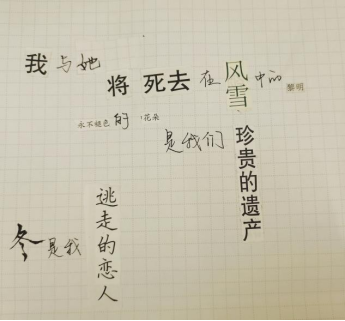 我与她将死去在风雪中的黎明
永不褪色的花朵
是我们珍贵的遗产
冬是我逃走的恋人